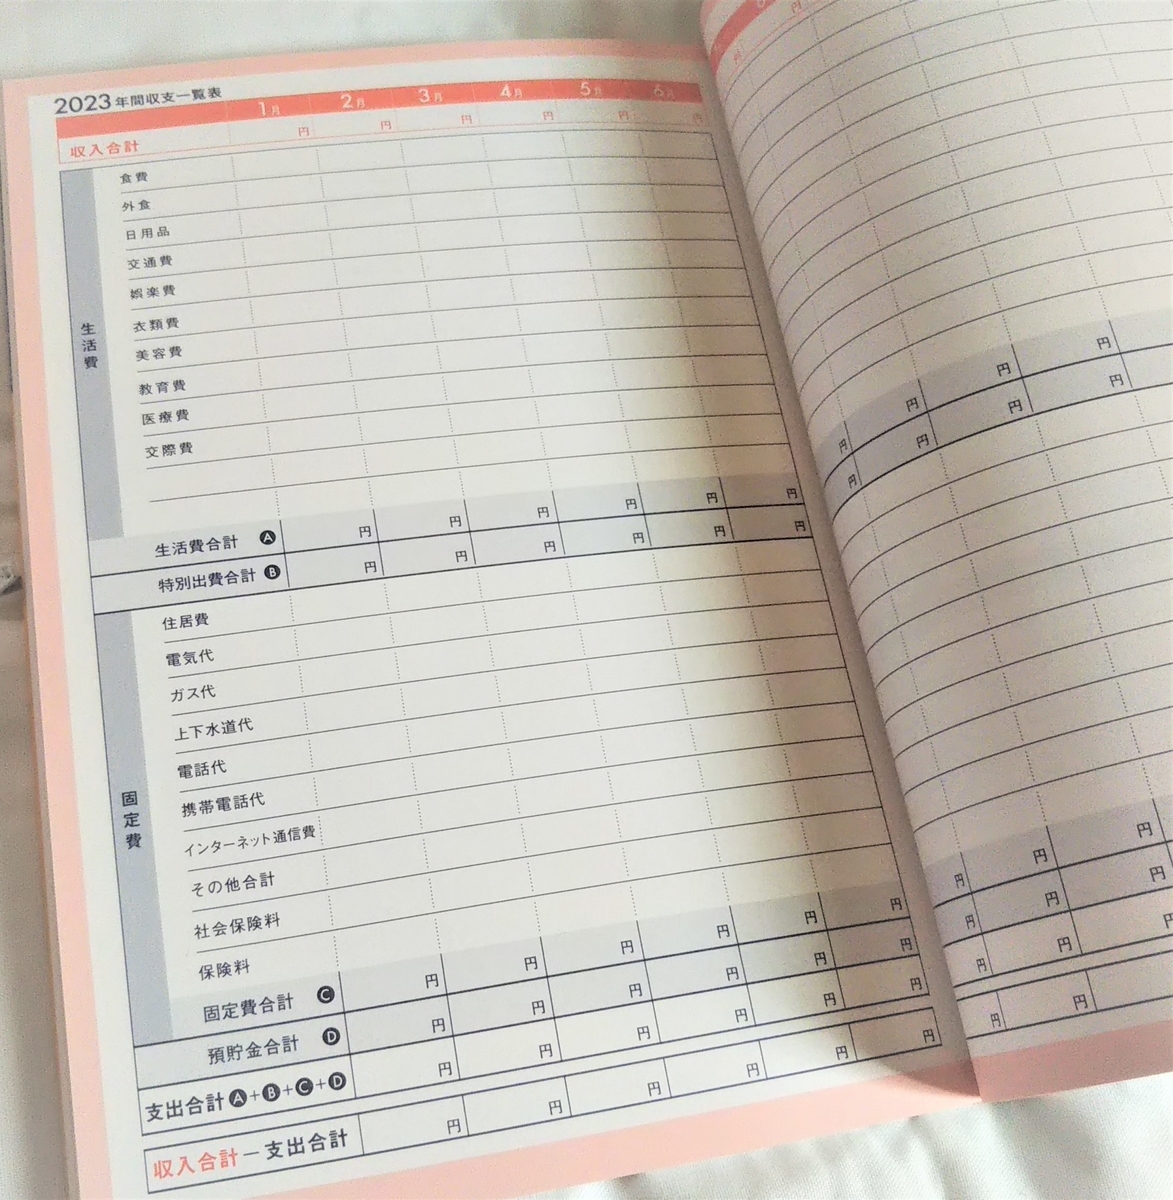 2023年間収支一覧表
1月 2月 3月 4月 5月 6月
収入合計 円 円 円 円 円 円
生活費
食費
外食
日用品
交通費
娯楽費
衣類費
美容費
教育費
医療費
交際費
生活費合計 A 円 円 円 円 円 円
特別出費合計 B 円 円 円 円 円 円
固定費
住居費
電気代
ガス代
上下水道代
電話代
携帯電話代
インターネット通信費
その他合計
社会保険料
保険料
固定費合計 C 円 円 円 円 円 円
預貯金合計 D 円 円 円 円 円 円
支出合計 A+B+C+D 円 円 円 円 円 円
収入合計－支出合計 円 円 円 円 円 円
円 円
円 円 円
円 円 円
円 円
円 円 円
円 円
円 円